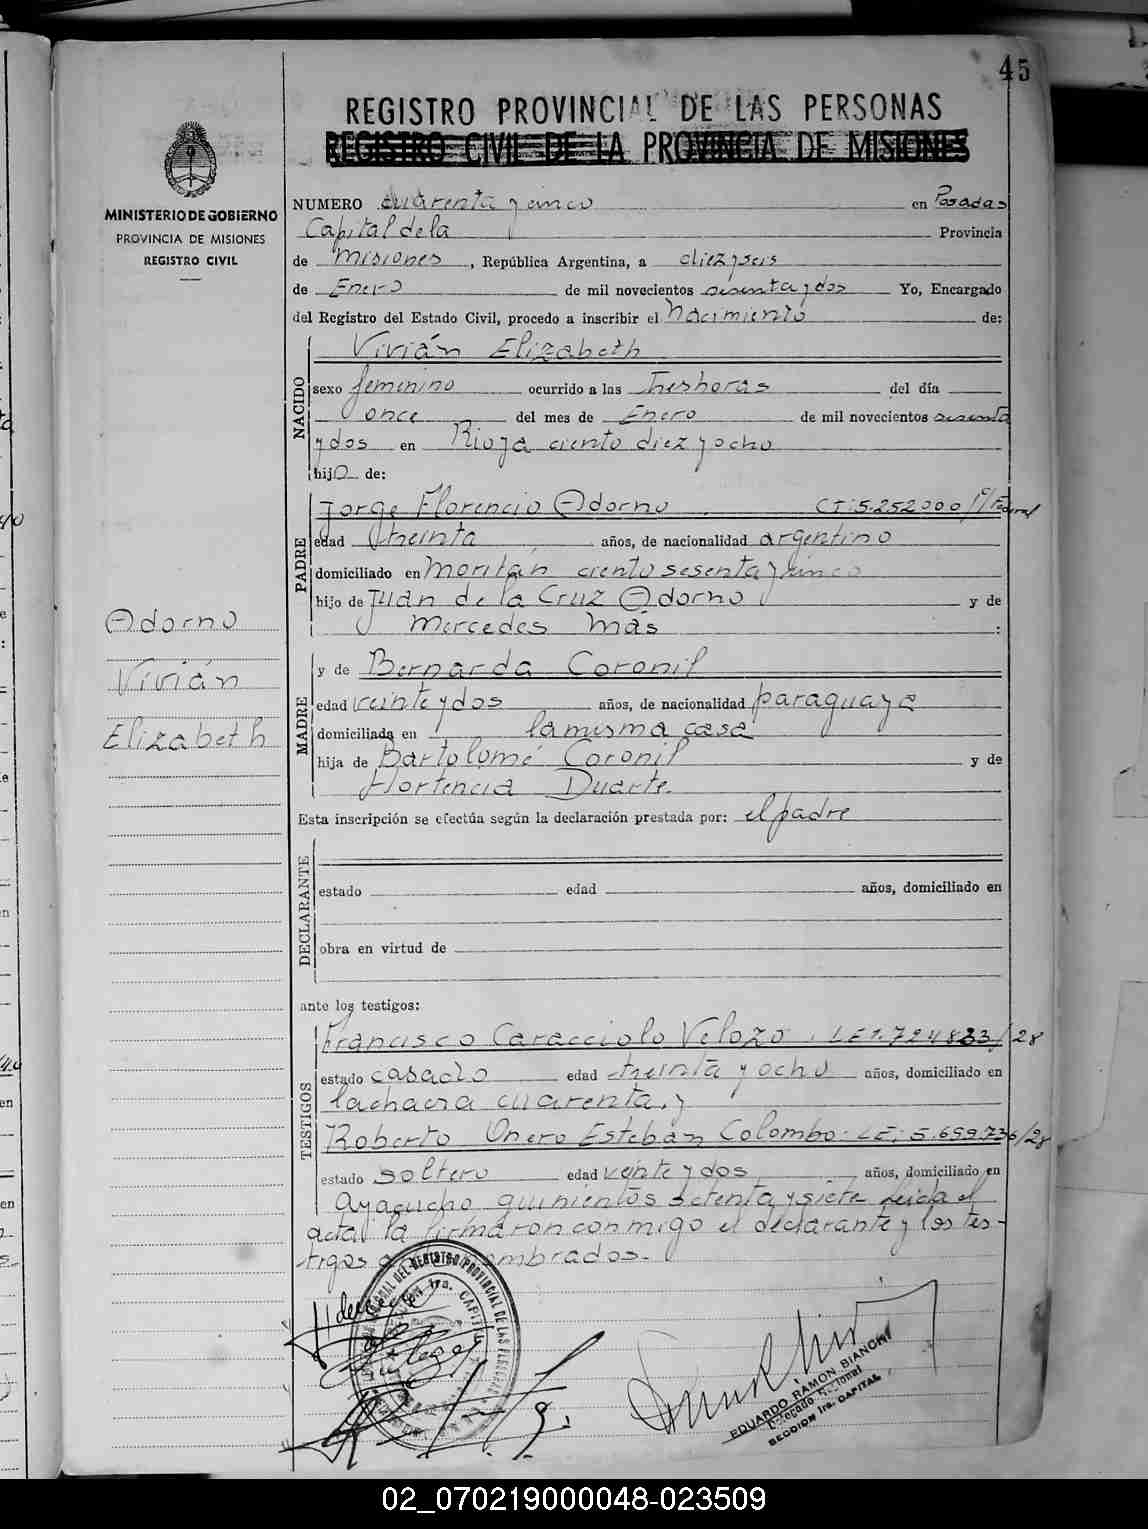 45
REGISTRO PROVINCIAL DE LAS PERSONAS
REGISTRO CIVIL DE LA PROVINCIA DE MISIONES
MINISTERIO DE GOBIERNO
PROVINCIA DE MISIONES
REGISTRO CIVIL
NUMERO cuarenta y cinco en Posadas
Capital de la Provincia
de Misiones, República Argentina, a diez y seis
de Enero de mil novecientos sesenta y dos Yo, Encargado
del Registro del Estado Civil, procedo a inscribir el Nacimiento de:
NACIDO
Vivián Elizabeth
sexo femenino ocurrido a las Tres horas del día
once del mes de Enero de mil novecientos sesenta
y dos en Rioja ciento diez y ocho
hijo de:
PADRE
Jorge Florencio Odorno CI: 5.252000 P/Federal
edad treinta años, de nacionalidad argentino
domiciliado en Moritán ciento sesenta y cinco
hijo de Juan de la Cruz Odorno y de
Mercedes Más :
Odorno
Vivián
Elizabeth
MADRE
y de Bernarda Coronil
edad veinte y dos años, de nacionalidad paraguaya
domiciliada en la misma casa
hija de Bartolomé Coronil y de
Hortencia Duarte.
Esta inscripción se efectúa según la declaración prestada por: el padre
DECLARANTE
estado edad años, domiciliado en
obra en virtud de
ante los testigos:
TESTIGOS
Francisco Caracciolo Velozo. LE 1.724833/28
estado casado edad treinta y ocho años, domiciliado en
la chacra cuarenta, y
Roberto Esteban Colombo. LE; 5.659.736/28
estado soltero edad veinte y dos años, domiciliado en
Ayacucho quinientos setenta y siete Leida el
acta, la firmaron conmigo el declarante y los tes-
tigos ombrados.-
DEL REGISTRO PROVINCIAL DE LAS PERSONAS
SECCION 1ra. CAPITAL
EDUARDO RAMON BIANCHI
Delegado Nacional
SECCION 1ra. CAPITAL
02_070219000048-023509